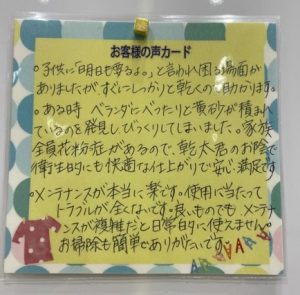 お客様の声カード
。子供に「明日も要るよ。」と言われ困る場面が
ありましたが、すぐにしっかりと乾くので助かります。
。ある時 ベランダにべったりと黄砂が積まれ
ているのを発見しびっくりしてしまいました。家族
全員花粉症があるので、乾太君のお陰で
衛生的にも快適な仕上がりで安心満足です
。メンテナンスが本当に楽です。使用に当たって
トラブルが全くないです。良いものでも、メンテナ
ンスが複雑だと日常的に使えません。
お掃除も簡単でありがたいです。